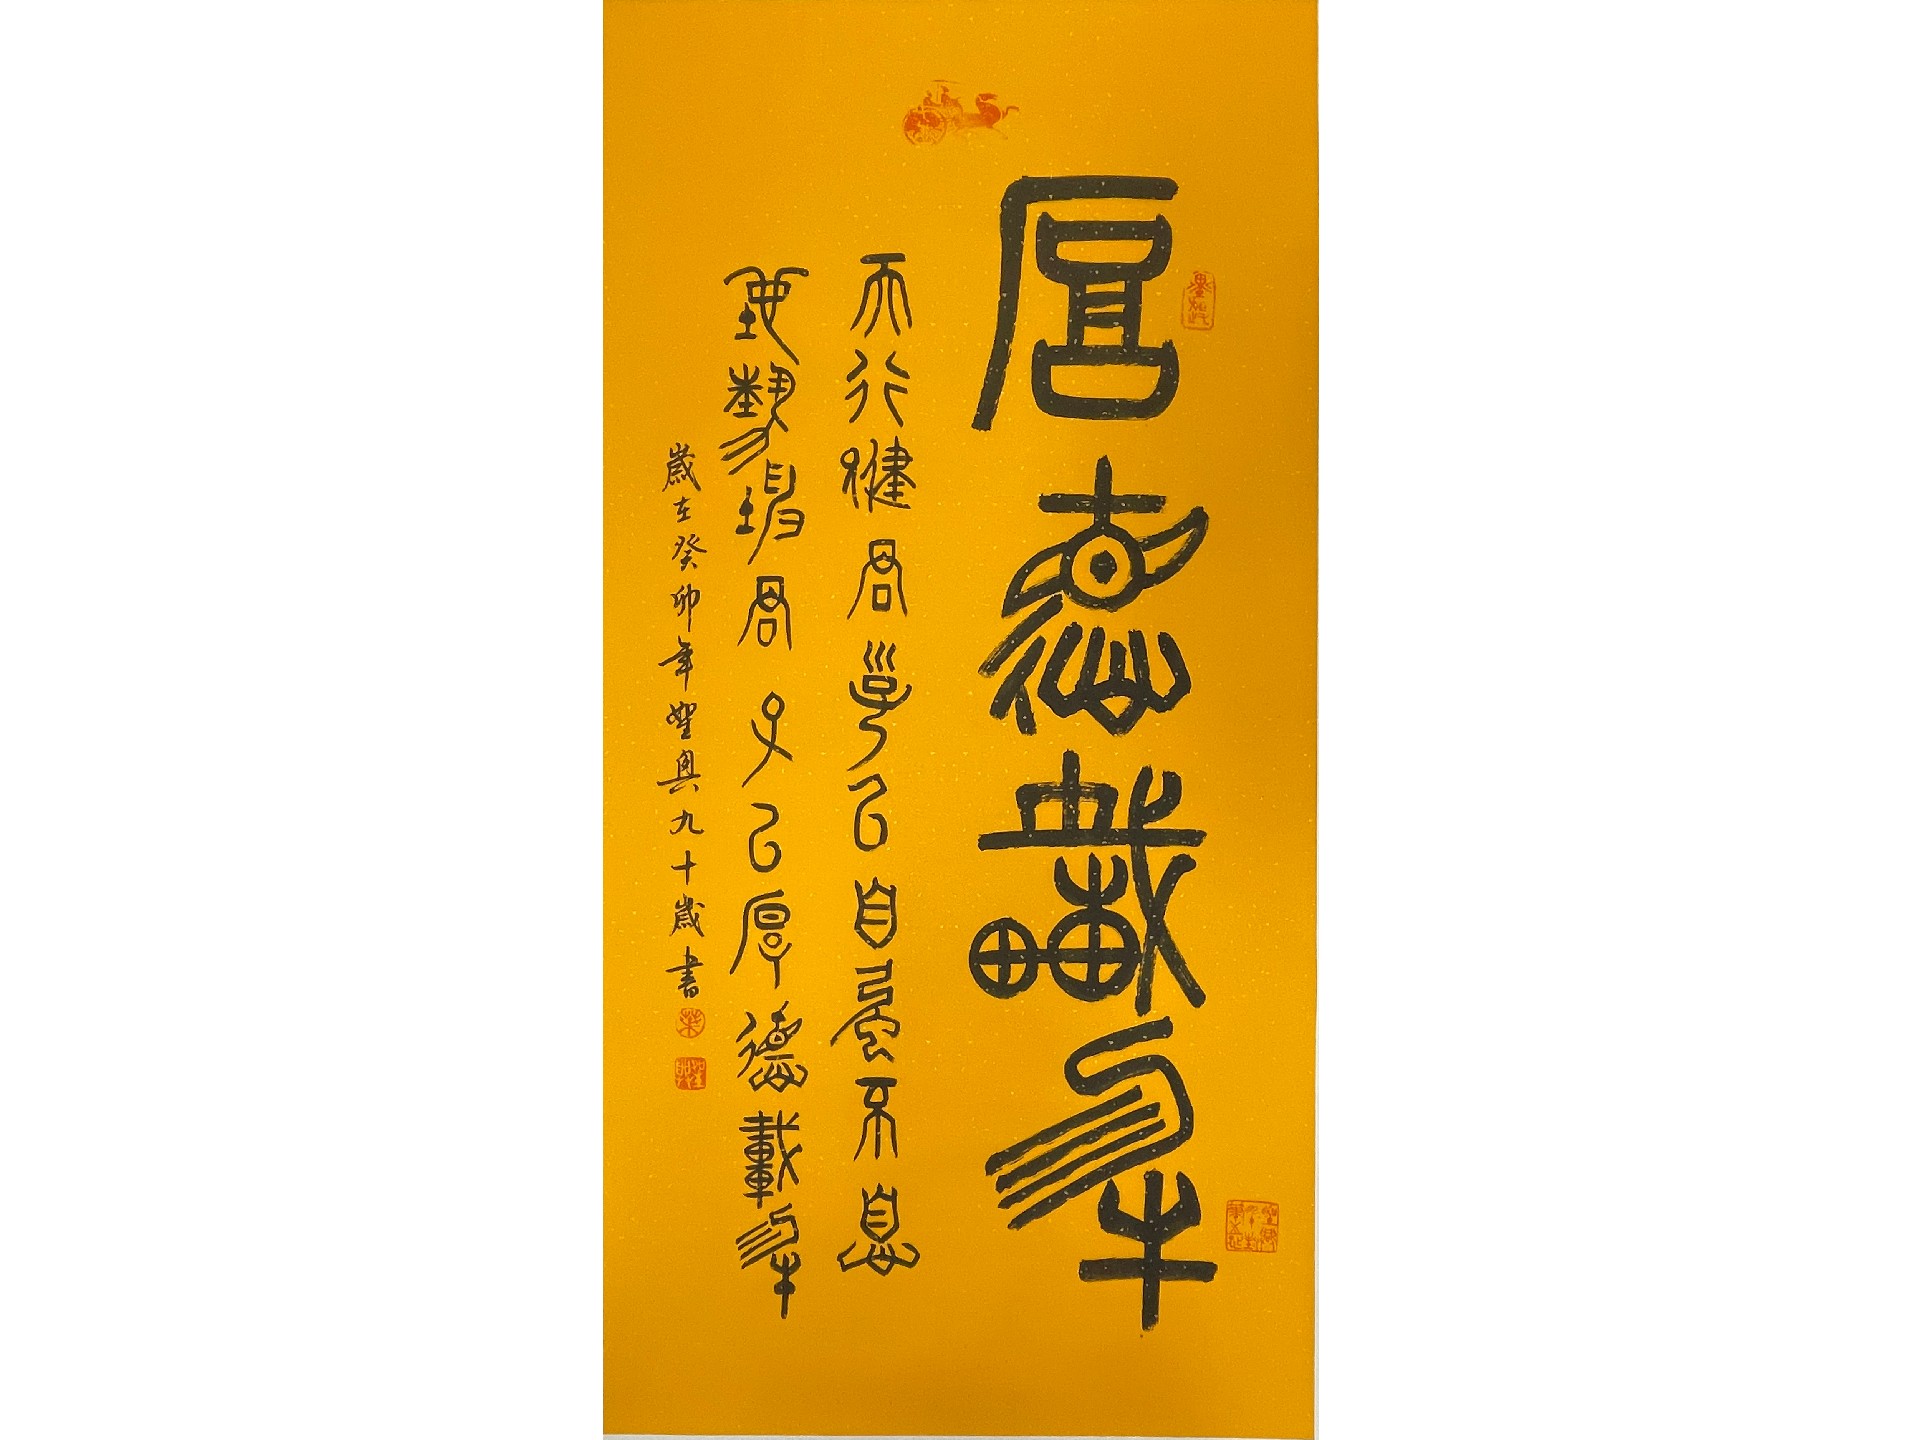 厚德載物
天行健君子以自強不息
地勢坤君子以厚德載物
歲在癸卯年聖與九十歲書